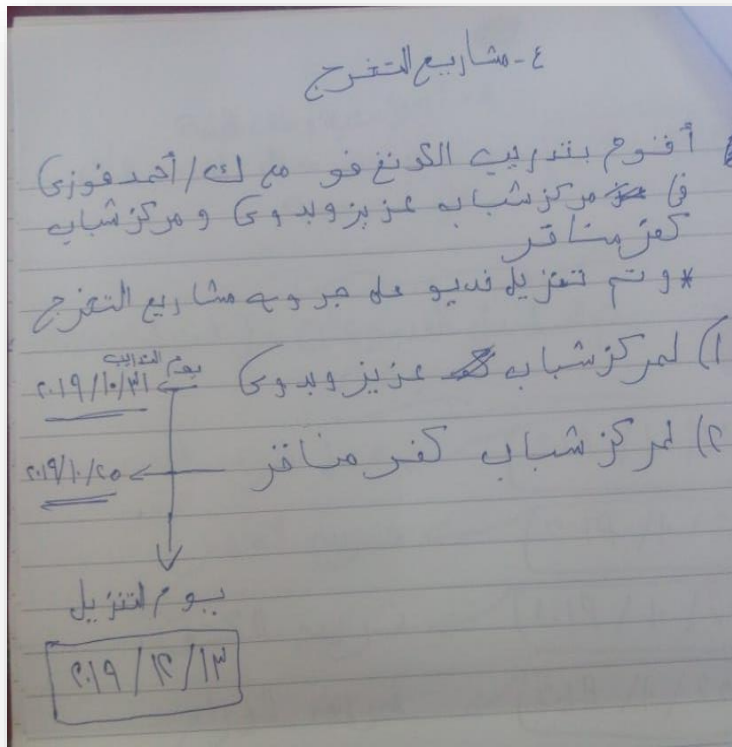 ٤- مشاريع التخرج
أقوم بتدريب الكونغ فو مع ك/أحمد فوزى
فى مركز شباب عزيز وبدوى ومركز شباب
كفر مناقر
* وتم تنزيل فديو على جروب مشاريع التخرج
١) لمركز شباب عزيز وبدوى
يوم التدريب
٢٠١٩/١٠/٣١
٢) لمركز شباب كفر مناقر
٢٠١٩/١٠/٢٥
يوم التنزيل
٢٠١٩/١٢/١٣